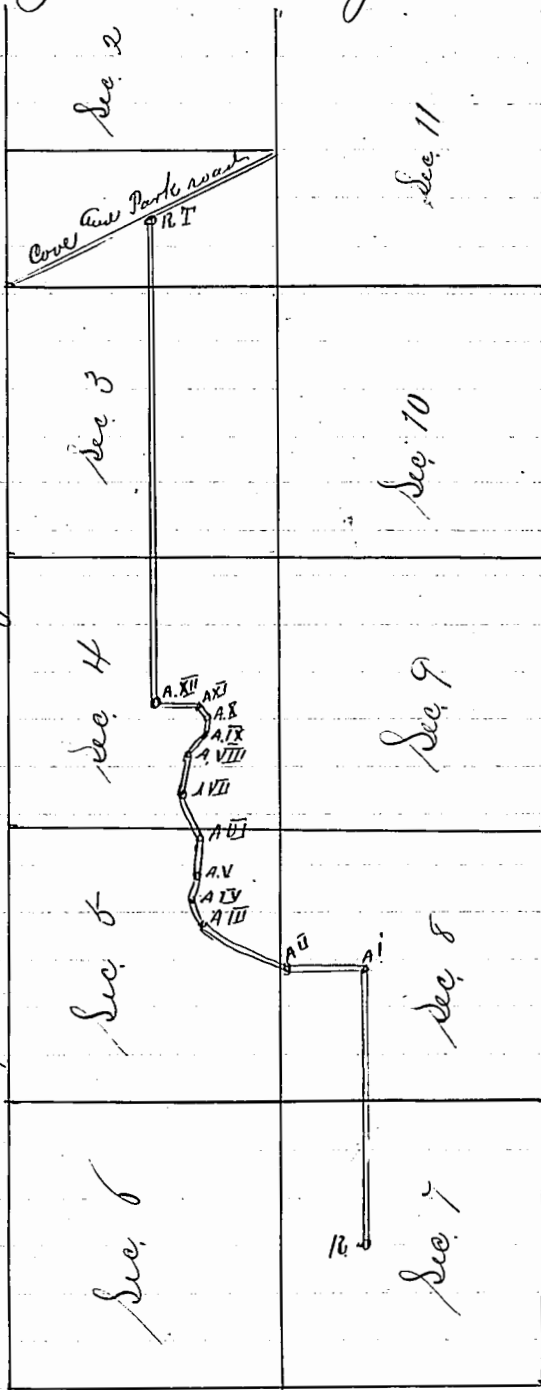 Sec. 2
Sec. 11
Cove and Park road
R T
Sec. 3
Sec. 10
Sec. 4
Sec. 9
A.XII
A XI
A.X
A.IX
A.VIII
A VII
A VI
A.V
A IV
A III
A II
A I
Sec. 5
Sec. 8
R.
Sec. 6
Sec. 7